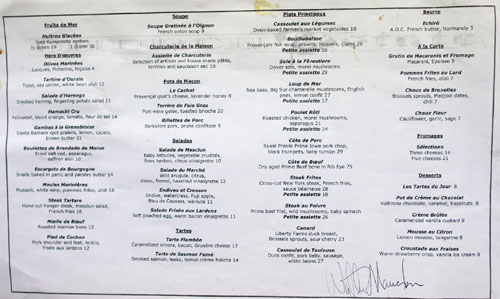 Fruits de Mer
Huîtres Glacées
Iced Kumamoto oysters
½ dozen 19 1 dozen 36
Hors D'œuvres
Olives Marinées
Lucques, Picholine, Niçoise 4
Tartine d'Oursin
Toast, sea urchin, white bean aïoli 12
Salade d'Harengs
Smoked herring, fingerling potato salad 11
Hamachi Cru
blood orange, tomato, fleur de sel 14
Gambas à la Grenobloise
Santa Barbara spot prawns, lemon, capers,
brown butter 21
Boulettes de Brandade de Morue
Fried salt cod, asparagus,
saffron aïoli 16
Escargots de Bourgogne
Snails baked in garlic and parsley butter 14
Moules Marinières
Mussels, white wine, pommes frites, aïoli 18
Steak Tartare
Hand-cut hanger steak, mesclun salad,
French fries 16
Maille de Bœuf
Roasted marrow bone 13
Pied de Cochon
Pork shoulder and feet, lentils,
frisée aux lardons 12
Soupe
Soupe Gratinée à l'Oignon
French onion soup 9
Charcuterie de la Maison
Assiette de Charcuterie
Selection of artisan and house made pâtés,
terrines and saucisson sec 18
Pots de Maçon
Le Cachat
Homemade goat cheese, lavender honey 8
Terrine de Foie Gras
Port-wine gelée, toasted brioche 20
Rillettes de Porc
Berkshire pork, prune confiture 9
Salades
Salade de Mesclun
Baby lettuces, vegetable crudités,
fines herbes, citrus vinaigrette 10
Salade du Marché
and arugula, citrus,
dates, fennel, hazelnut vinaigrette 12
Endives et Cresson
Endive, watercress, Fuji apple,
Bleu de Causses, walnuts 11
Salade Frisée aux Lardons
Soft poached egg, warm bacon vinaigrette 11
Tartes
Tarte Flambée
Caramelized onions, bacon, Gruyère cheese 13
Tarte de Saumon Fumé
Smoked salmon, leeks, lemon crème fraîche 14
Plats Principaux
Cassoulet aux Légumes
Oven-baked farmer's market vegetables 18
Bouillabaisse
Provençale fish soup, prawns, mussels, clams 26
Petite assiette 16
Sole à la Florentine
Dover sole, morel mushrooms
Petite assiette 29
Loup de Mer
Sea bass, Big Sur chanterelle mushrooms, English
peas, lemon confit 27
Petite assiette 17
Poulet Rôti
Roasted chicken, morel mushrooms,
asparagus 21
Petite assiette 14
Côte de Porc
Roasted Prairie Prime Iowa pork chop,
black trumpets, baby turnips 29
Côte de Bœuf
Dry aged Prime Beef bone in Rib Eye 75
Steak Frites
Cross-cut New York steak, French fries,
sauce béarnaise 28
Petite assiette 18
Steak au Poivre
Prime beef filet, wild mushrooms, baby spinach
Petite assiette 26
Canard
Liberty Farms duck breast,
brussels sprouts, sour cherry 23
Cassoulet de Toulouse
Duck confit, pork belly, sausage,
white beans 27
Beurre
Echiré
A.O.C. French butter, Normandy 3
A la Carte
Gratin de Macaronis et Fromage
Macaroni, Epoisse 9
Pommes Frites au Lard
French fries, aïoli 7
Choux de Bruxelles
Brussels sprouts, Medjool dates,
chili 7
Choux Fleur
Cauliflower, garlic, sage 7
Fromages
Sélections
Three cheeses 14
Five cheeses 21
Desserts
Les Tartes du Jour 8
Pot de Crème au Chocolat
Valrhona chocolate, caramel, hazelnuts 8
Crème Brûlée
Caramelized vanilla custard 8
Mousse au Citron
Lemon mousse, tangerine 8
Croustade aux Fraises
Warm strawberry crisp, vanilla ice cream 8